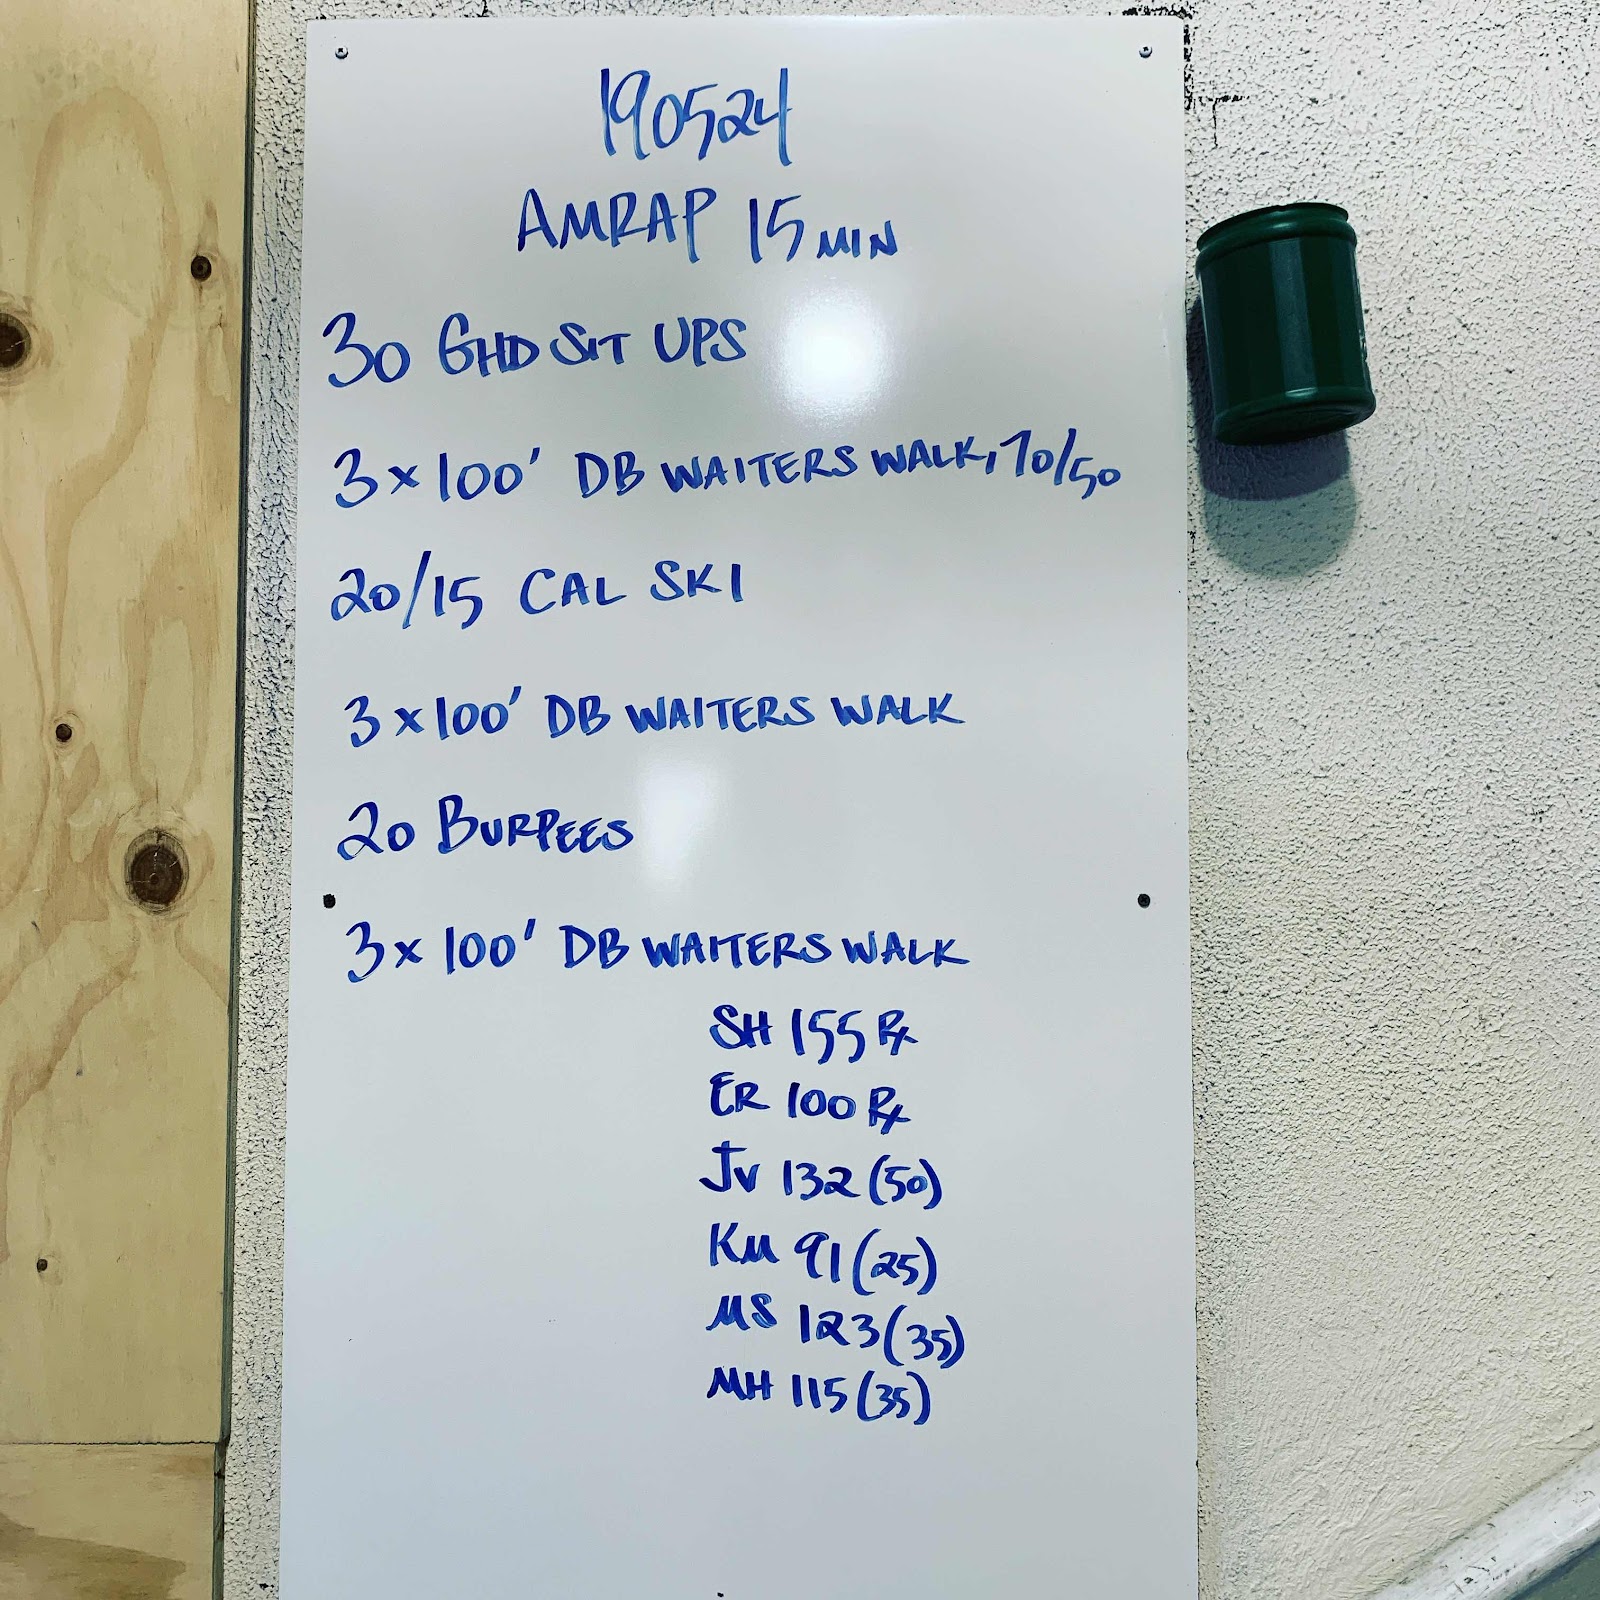 190524
AMRAP 15 MIN
30 GHD SIT UPS
3 x 100' DB WAITERS WALK, 70/50
20/15 CAL SKI
3 x 100' DB WAITERS WALK
20 BURPEES
3 x 100' DB WAITERS WALK
SH 155 Rx
ER 100 Rx
JV 132 (50)
KM 91 (25)
MS 123 (35)
MH 115 (35)